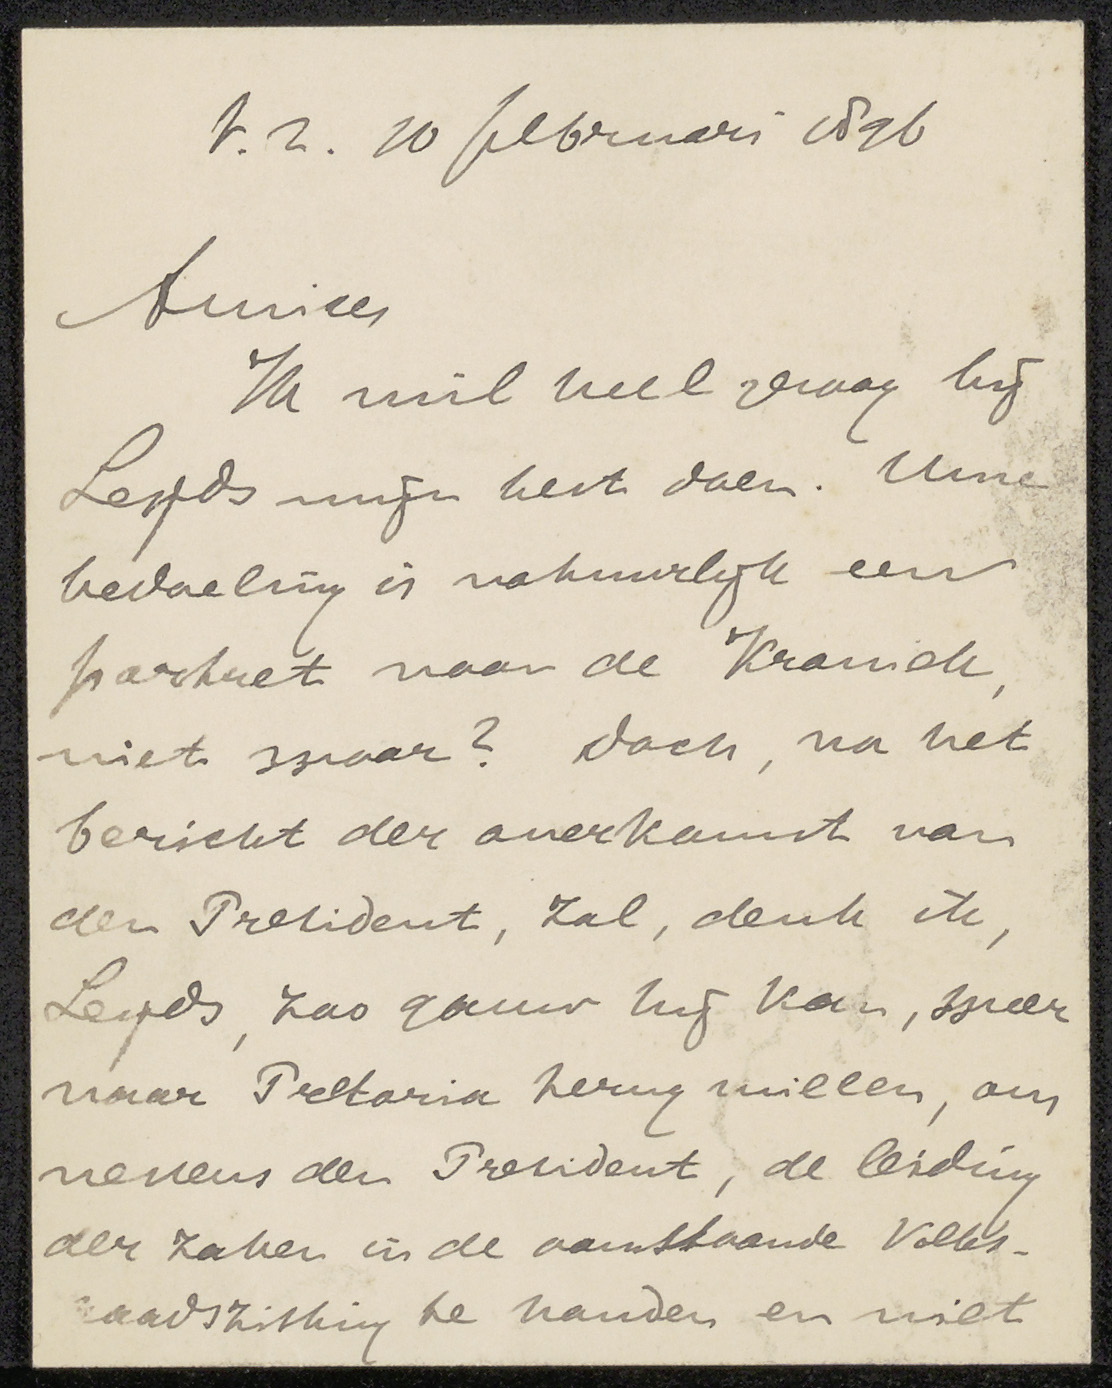 V. Z. 10 februari 1896
Amice,
Ik wil heel graag bij
Leyds mijn best doen. Uwe
bedoeling is natuurlijk een
portret voor de Kroniek,
niet waar? Doch, na het
bericht der overkomst van
den President, zal, denk ik,
Leyds, zoo gauw hij kan, weer
naar Pretoria terug willen, om
nevens den President, de leiding
der zaken in de aanstaande Volks-
raadszitting te houden en niet